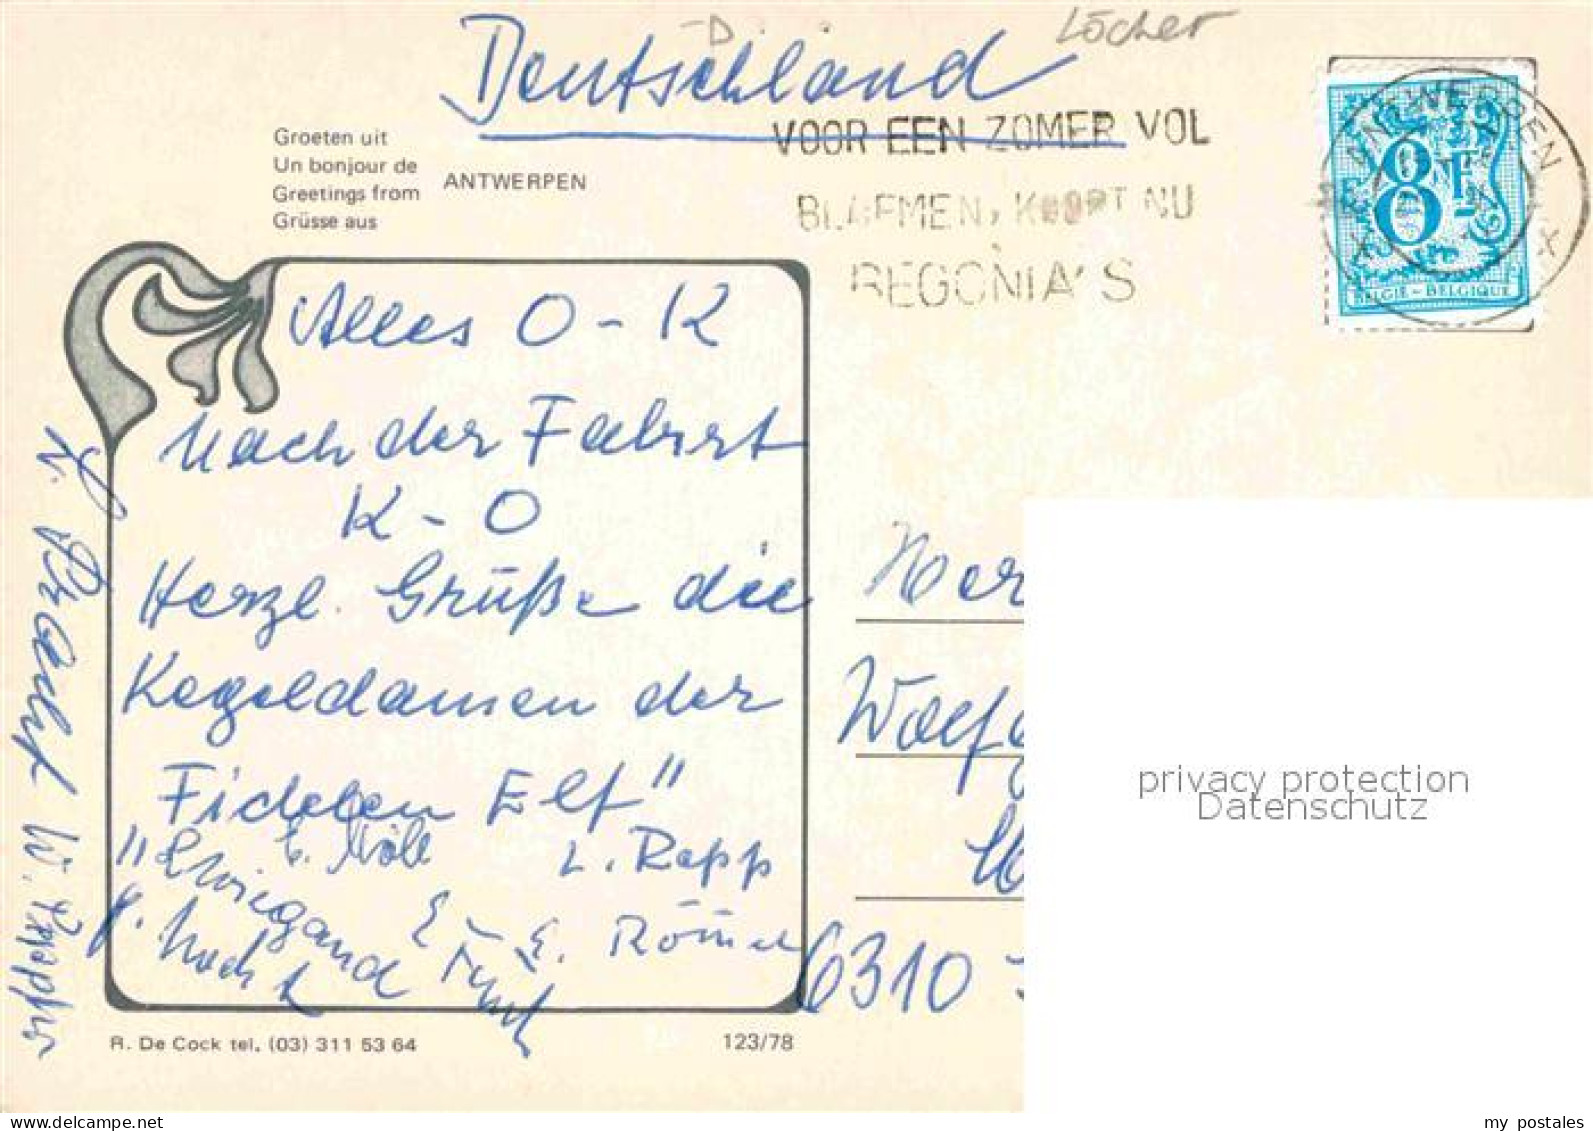 Löcher
D
Deutschland
VOOR EEN ZOMER VOL
BLOEMEN, KOOPT NU
BEGONIA'S
ANTWERPEN
X X
8F
BELGIË - BELGIQUE
Groeten uit
Un bonjour de
Greetings from
Grüsse aus
ANTWERPEN
Alles O - K
Nach der Fahrt
K - O
Herzl. Grüße die
Kegeldamen der
Fidelen Elf"
L. Rapp
E. Römer
Wiegand
Her
Wolfg
6310
privacy protection
Datenschutz
R. De Cock tel. (03) 311 53 64
123/78
my postales